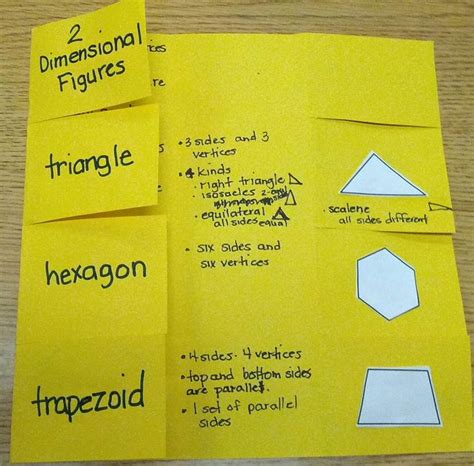 2
Dimensional
Figures
ices
re
triangle
s
• 3 sides and 3
vertices
• 4 kinds
. right triangle
. isosacles 2
. equilateral
all sides equal
. scalene
all sides different
hexagon
• six sides and
six vertices
trapezoid
• 4 sides. 4 vertices
• top and bottom sides
are parallel.
• 1 set of parallel
sides